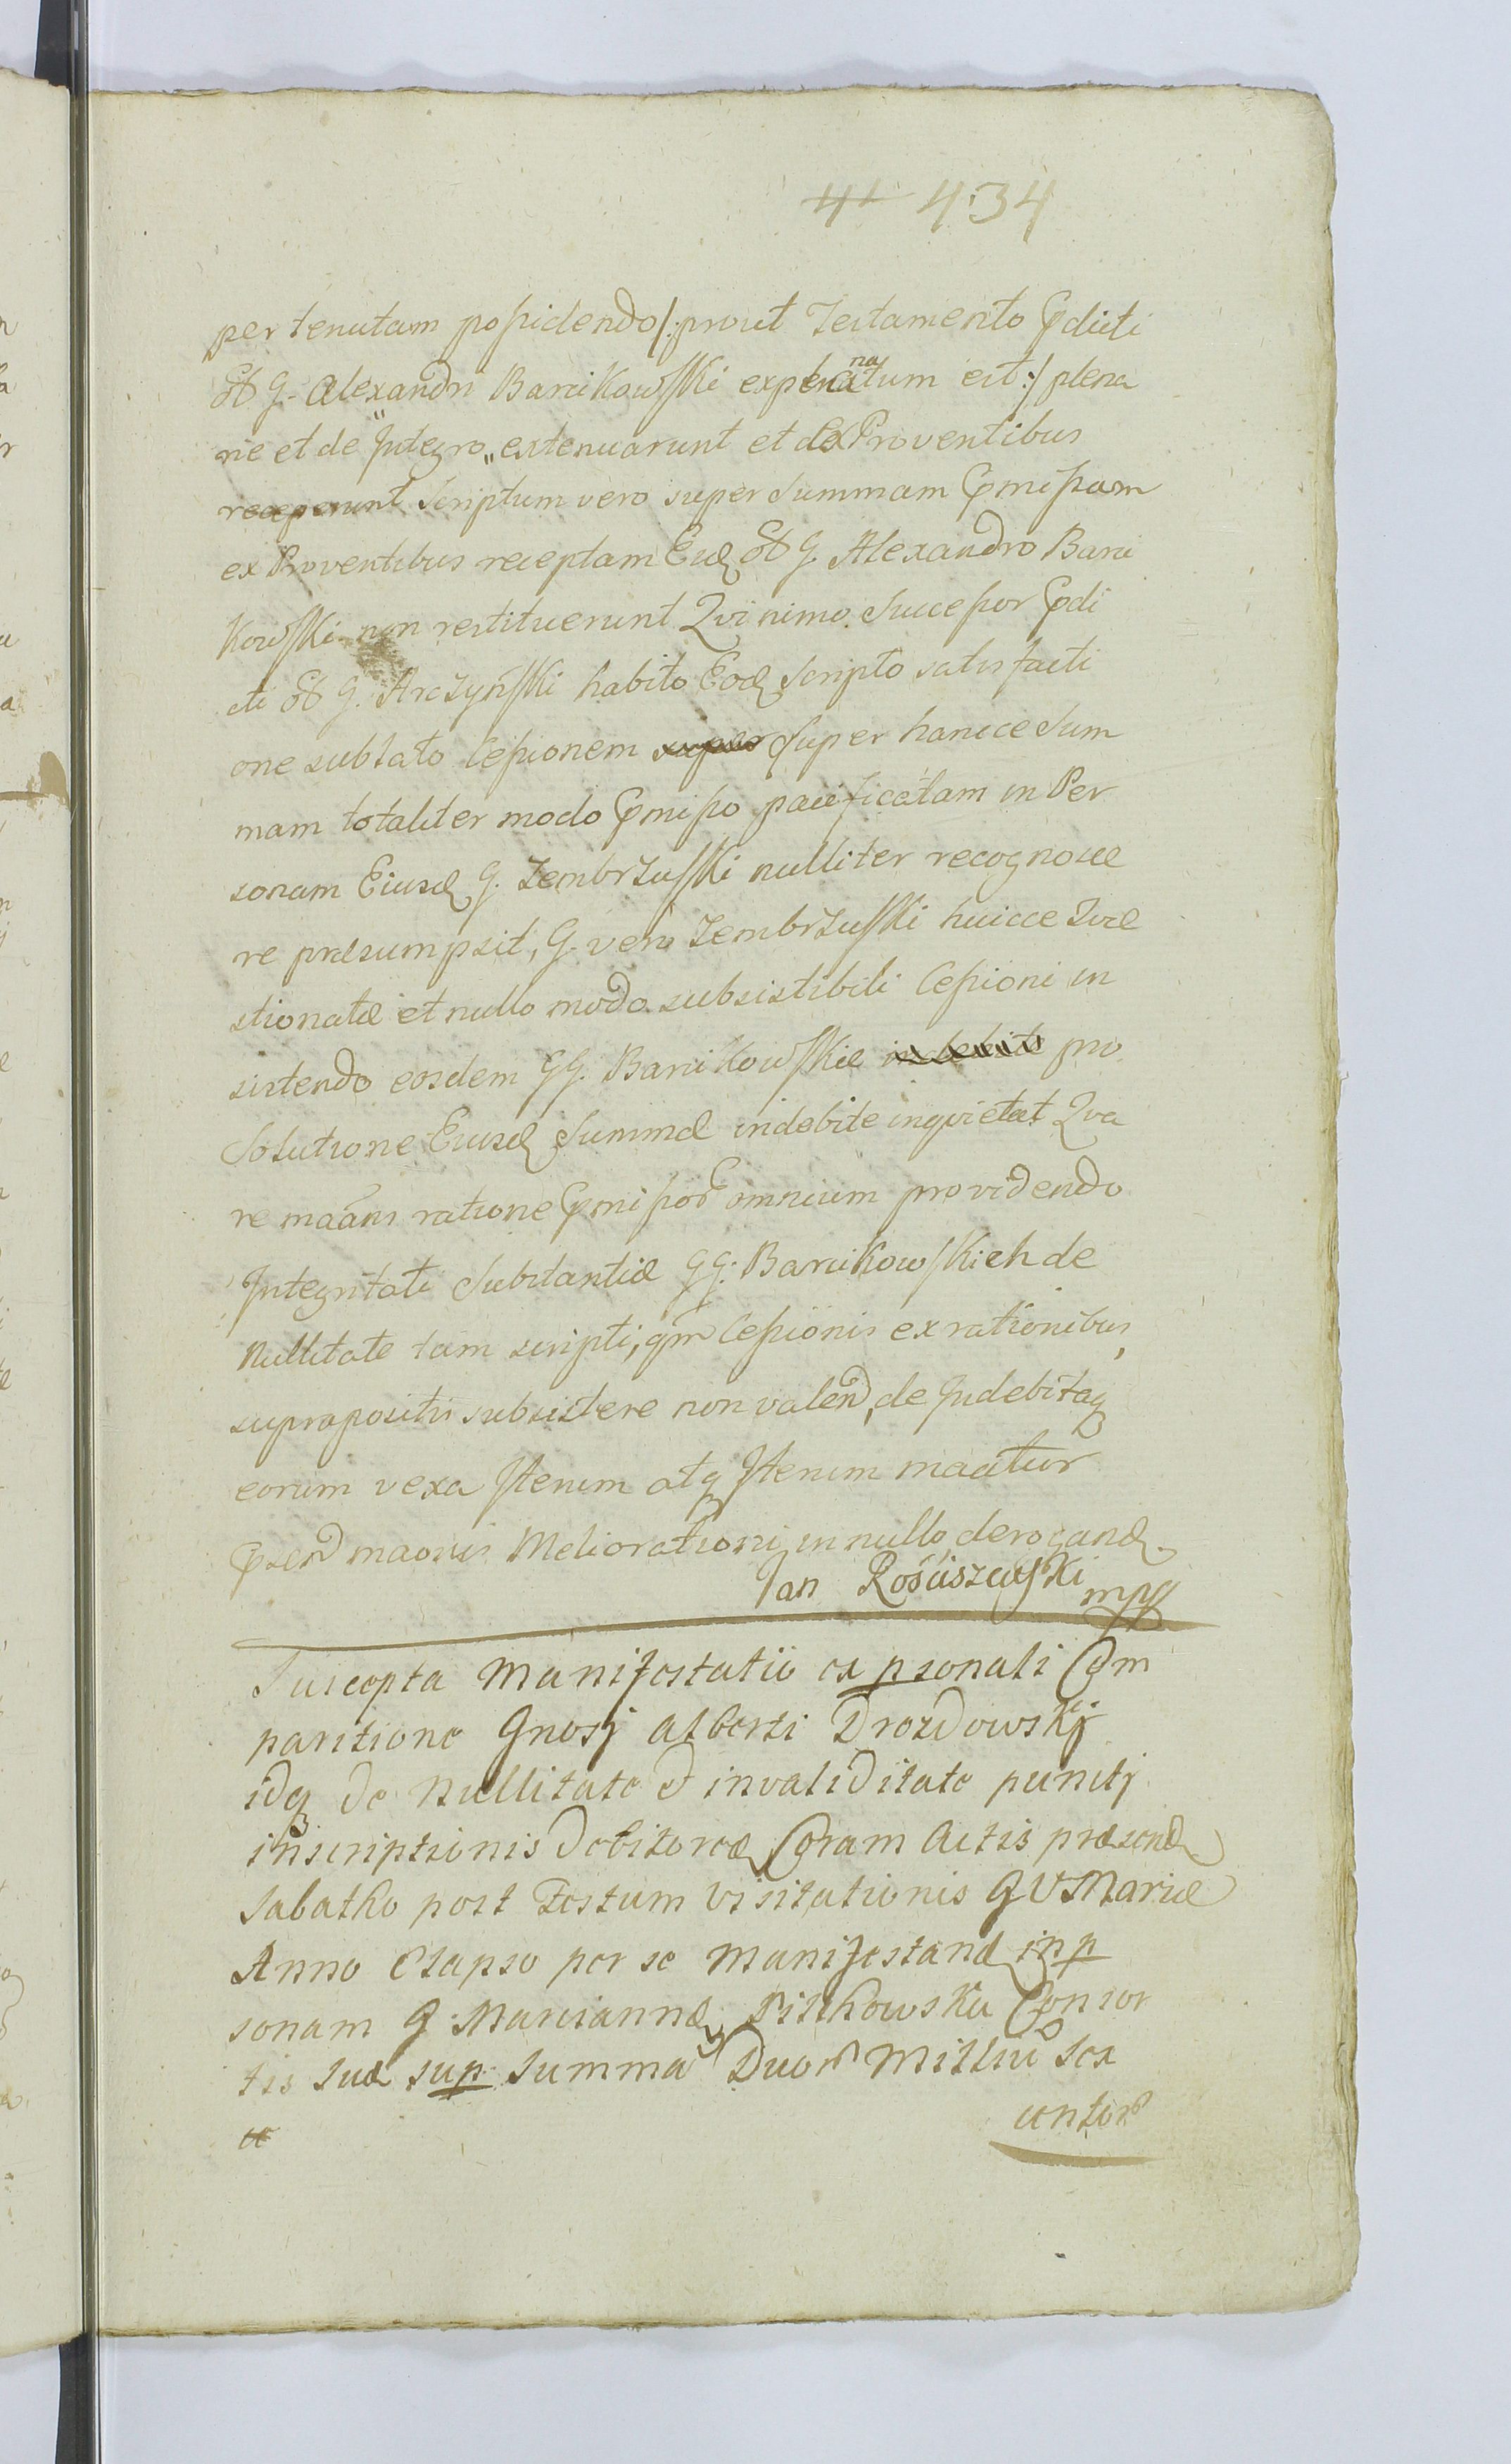 434
per tenutam possidendo /: prout Testamento Pdicti
Ol G. Alexandri Barcikowski explanatum est :/ plena
rie et de Integro extenuarunt et ex Proventibus
receperunt Scriptum vero super Summam Pmissam
ex Proventibus receptam Eid Ol G. Alexandro Barci
kowski non restituerunt Qvinimo Successor Pdi
cti Ol G. Arczynski habito Eod Scripto satisfacti
one sublato Cessionem Super hancce Sum
mam totaliter modo Pmisso pacificatam in Per
sonam Eiusd G. Zembrzuski nulliter recognosce
re præsumpsit, G. vero Zembrzuski huicce Qvæ
stionatæ et nullo modo subsistibili Cessioni in
sistendo eosdem GG. Barcikowskie pro
Solutione Eiusd Summæ indebite inqvietat Qva
re maãns ratione Pmissor omnium providendo
Integritati Substantiæ GG. Barcikowskich de
Nullitate tam scripti, qm Cessionis ex rationibus
suprapositis subsistere non valen, de Indebitaq
eorum vexa Iterum atq Iterum maãtur
Psen maõnis Meliorationi in nullo derogand.
Jan Rościszewski mpp
Suscepta Manifestatio ex psonali Com
paritione Gnosj Alberti Drozdowskj
idq de Nullitate et invaliditate puncti
inscriptionis Debitoreæ Coram Actis præsend
Sabatho post Festum Visitationis G V Mariæ
Anno Elapso per se Manifestand in p
sonam G. Mariannæ Pilkowska Consor
tis suæ sup Summa Duor Milliu sex
centor